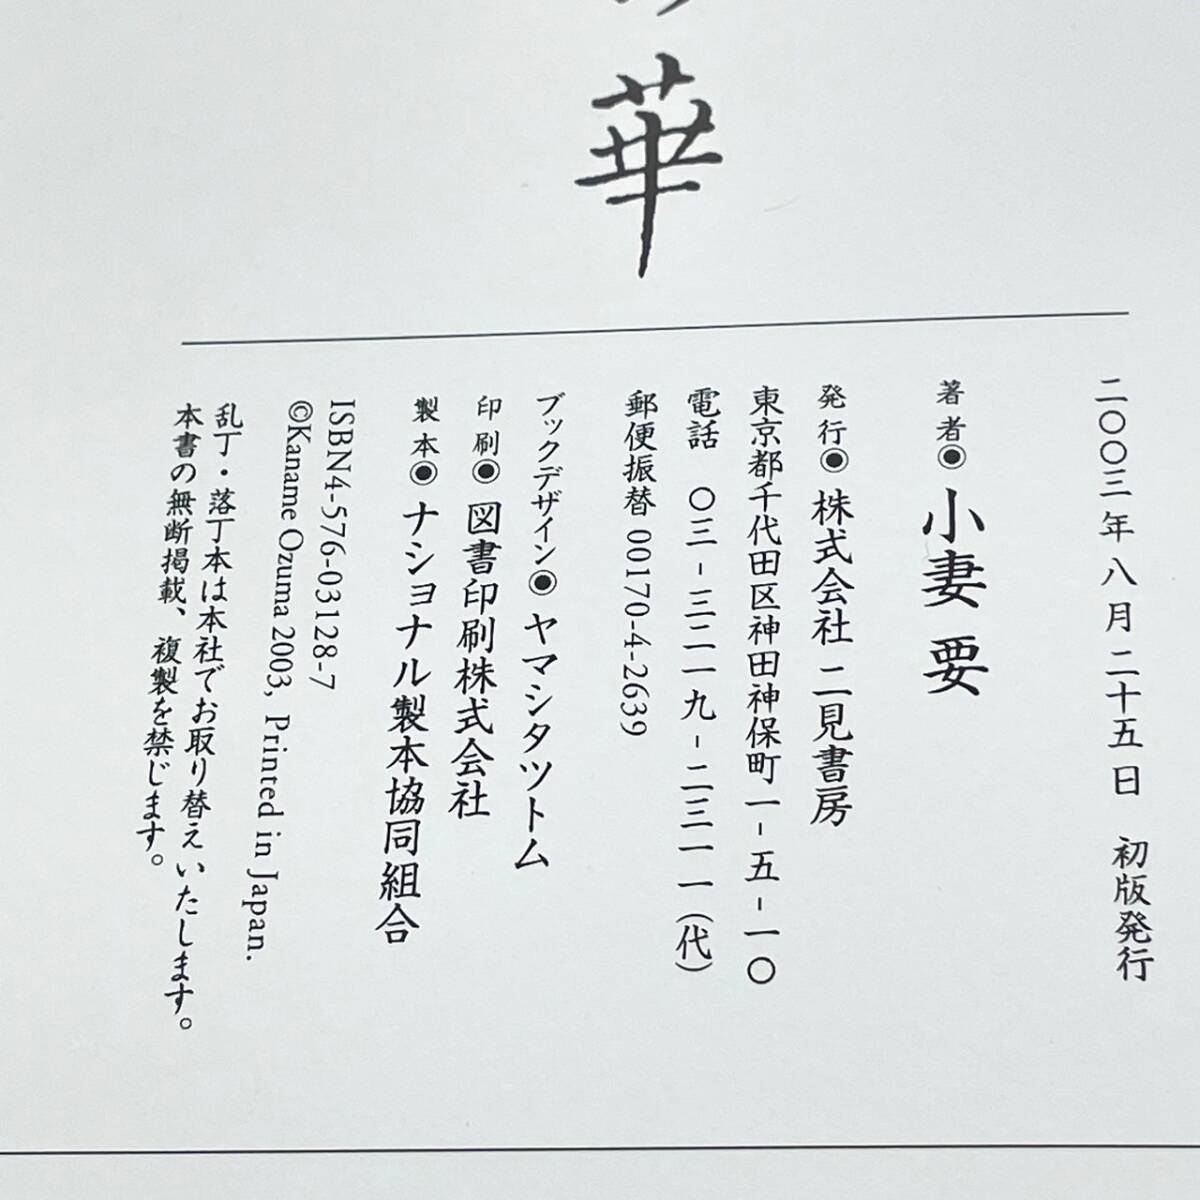 の華
二〇〇三年八月二十五日 初版発行
著者●小妻要
発行●株式会社 二見書房
東京都千代田区神田神保町一-五-一〇
電話 〇三-三二一九-二三一一(代)
郵便振替 00170-4-2639
ブックデザイン●ヤマシタツトム
印刷●図書印刷株式会社
製本●ナショナル製本協同組合
ISBN4-576-03128-7
©Kaname Ozuma 2003, Printed in Japan.
乱丁・落丁本は本社でお取り替えいたします。
本書の無断掲載、複製を禁じます。